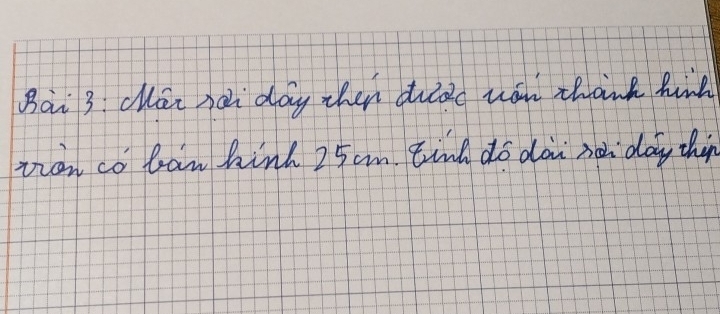 Bài 3: Một sợi dây thép được uốn thành hình
tròn có bán kính 25cm. Tính độ dài sợi dây thép